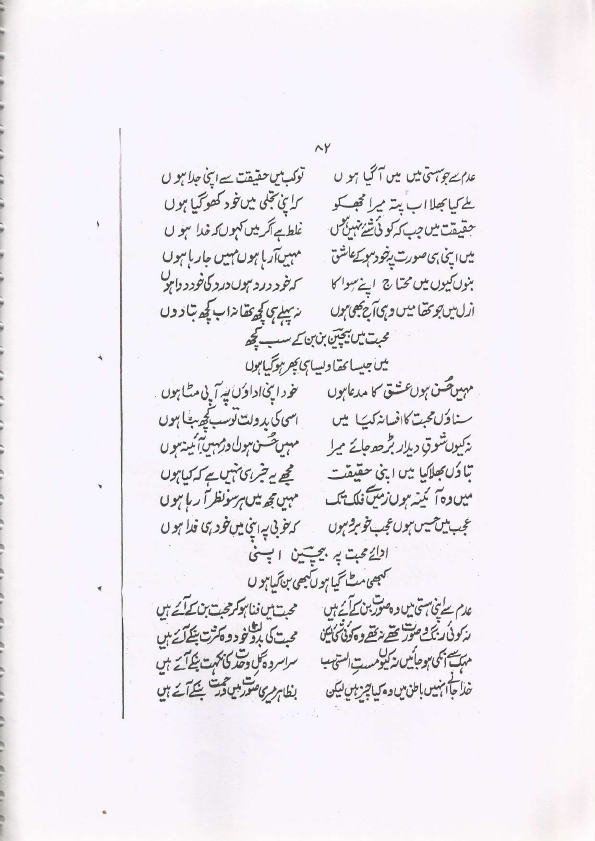 ۸۲
عدم سے جو ہستی میں میں آ گیا ہوں توکب میں حقیقت سے اپنی جدا ہوں
ملے کیا بھلا اب پتہ میرا مجھکو کہ اپنی تجلی میں خود کھو گیا ہوں
حقیقت میں جب کہ کوئی شئے نہیں غلط ہے اگر میں کہوں کہ خدا ہوں
میں اپنی ہی صورت پہ خود ہو کے عاشق مہیں آ رہا ہوں مہیں جا رہا ہوں
بنوں کیوں میں محتاج اپنے سوا کا کہ خود درد ہوں درد کی خود دوا ہوں
ازل میں جو تھا میں وہی آج بھی ہوں نہ پہلے ہی کچھ تھا نہ اب کچھ بتا دوں
محبت میں بیچین بن بن کے سب کچھ
میں جیسا تھا ویسا ہی پھر ہو گیا ہوں
مہیں حُسن ہوں عشق کا مدعا ہوں خود اپنی اداؤں پہ آپ ہی مٹا ہوں
سناؤں محبت کا افسانہ کیا میں اسی کی بدولت تو سب کچھ بنا ہوں
نہ کیوں شوقِ دیدار بڑھ جائے میرا مہیں حُسن ہوں اور مہیں آئینہ ہوں
بتاؤں بھلا کیا میں اپنی حقیقت مجھے یہ خبر ہی نہیں ہے کہ کیا ہوں
میں وہ آئینہ ہوں زمیں سے فلک تک مہیں مجھ میں ہر سو نظر آ رہا ہوں
عجب میں حسیں ہوں عجب خوبرو ہوں کہ خوبی پہ اپنی میں خود ہی فدا ہوں
ادائے محبت پہ بیچین اپنی
کبھی مٹ گیا ہوں کبھی بن گیا ہوں
عدم سے اپنی ہستی میں وہ صورت بن کے آئے ہیں محبت میں فنا ہو کر محبت بن کے آئے ہیں
نہ کوئی رنگ و صورت تھے نہ تھے وہ کوئی شئے لیکن محبت کی بدولت خود وہ کثرت بنکے آئے ہیں
مہک سے ابھی ہو جائیں نہ کیوں مستِ الستی سب سراسر وہ گلِ وحدت کی نکہت بنکے آئے ہیں
خدا جانے انہیں باطن میں وہ کیا چیز ہیں لیکن بظاہر میری صورت میں وہ رحمت بنکے آئے ہیں